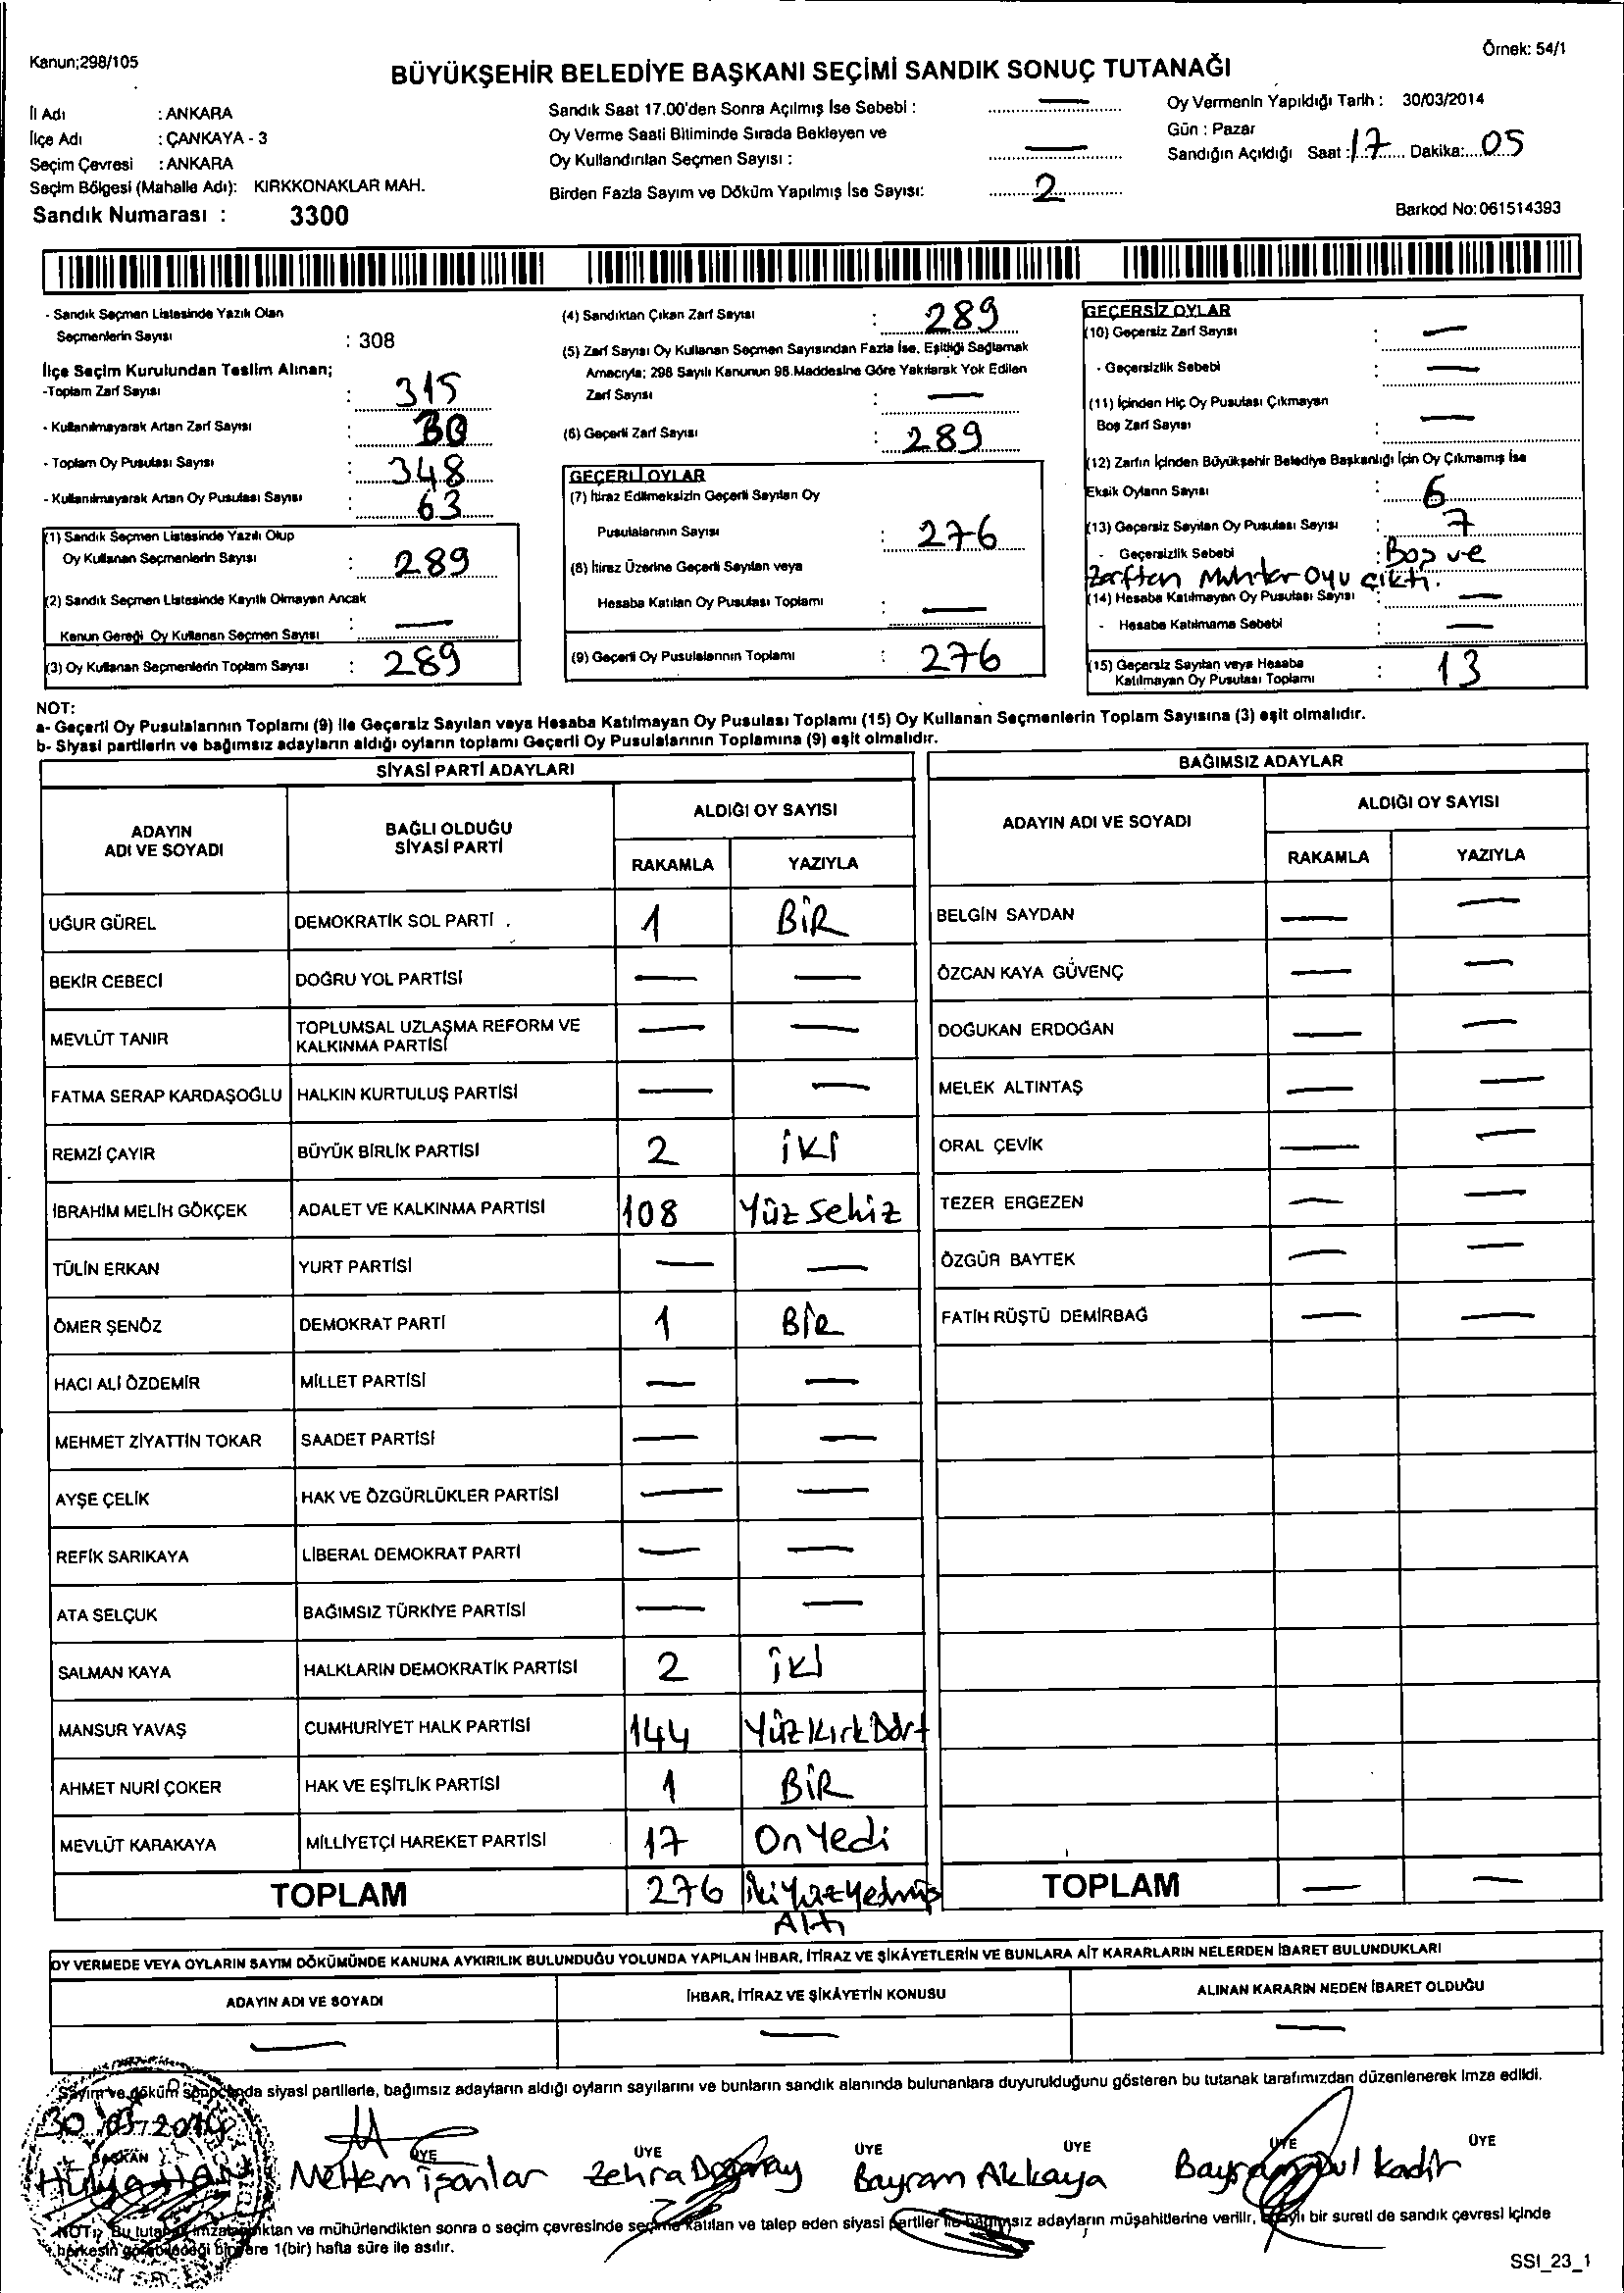 Kanun;298/105
Örnek: 54/1
BÜYÜKŞEHİR BELEDİYE BAŞKANI SEÇİMİ SANDIK SONUÇ TUTANAĞI
İl Adı : ANKARA
İlçe Adı : ÇANKAYA - 3
Seçim Çevresi : ANKARA
Seçim Bölgesi (Mahalle Adı): KIRKKONAKLAR MAH.
Sandık Numarası : 3300
Sandık Saat 17.00'den Sonra Açılmış İse Sebebi : —
Oy Verme Saati Bitiminde Sırada Bekleyen ve
Oy Kullandırılan Seçmen Sayısı : —
Birden Fazla Sayım ve Döküm Yapılmış İse Sayısı: 2
Oy Vermenin Yapıldığı Tarih : 30/03/2014
Gün : Pazar
Sandığın Açıldığı Saat : 17 Dakika: 05
Barkod No:061514393
- Sandık Seçmen Listesinde Yazılı Olan
Seçmenlerin Sayısı : 308
İlçe Seçim Kurulundan Teslim Alınan;
-Toplam Zarf Sayısı : 315
- Kullanılmayarak Artan Zarf Sayısı :
- Toplam Oy Pusulası Sayısı : 348
- Kullanılmayarak Artan Oy Pusulası Sayısı : 63
(1) Sandık Seçmen Listesinde Yazılı Olup
Oy Kullanan Seçmenlerin Sayısı : 289
(2) Sandık Seçmen Listesinde Kayıtlı Olmayan Ancak
Kanun Gereği Oy Kullanan Seçmen Sayısı : —
(3) Oy Kullanan Seçmenlerin Toplam Sayısı : 289
(4) Sandıktan Çıkan Zarf Sayısı : 289
(5) Zarf Sayısı Oy Kullanan Seçmen Sayısından Fazla İse, Eşitliği Sağlamak
Amacıyla; 298 Sayılı Kanunun 98.Maddesine Göre Yakılarak Yok Edilen
Zarf Sayısı : —
(6) Geçerli Zarf Sayısı : 289
GEÇERLİ OYLAR
(7) İtiraz Edilmeksizin Geçerli Sayılan Oy
Pusulalarının Sayısı : 276
(8) İtiraz Üzerine Geçerli Sayılan veya
Hesaba Katılan Oy Pusulası Toplamı : —
(9) Geçerli Oy Pusulalarının Toplamı : 276
GEÇERSİZ OYLAR
(10) Geçersiz Zarf Sayısı : —
- Geçersizlik Sebebi : —
(11) İçinden Hiç Oy Pusulası Çıkmayan
Boş Zarf Sayısı : —
(12) Zarfın İçinden Büyükşehir Belediye Başkanlığı İçin Oy Çıkmamış İse
Eksik Oyların Sayısı : 6
(13) Geçersiz Sayılan Oy Pusulası Sayısı : 7
- Geçersizlik Sebebi : Boş ve
Zarftan Muhtar Oyu çıktı.
(14) Hesaba Katılmayan Oy Pusulası Sayısı : —
- Hesaba Katılmama Sebebi : —
(15) Geçersiz Sayılan veya Hesaba
Katılmayan Oy Pusulası Toplamı : 13
NOT:
a- Geçerli Oy Pusulalarının Toplamı (9) ile Geçersiz Sayılan veya Hesaba Katılmayan Oy Pusulası Toplamı (15) Oy Kullanan Seçmenlerin Toplam Sayısına (3) eşit olmalıdır.
b- Siyasi partilerin ve bağımsız adayların aldığı oyların toplamı Geçerli Oy Pusulalarının Toplamına (9) eşit olmalıdır.
SİYASİ PARTİ ADAYLARI
ADAYIN ADI VE SOYADI BAĞLI OLDUĞU SİYASİ PARTİ ALDIĞI OY SAYISI
RAKAMLA YAZIYLA
UĞUR GÜREL DEMOKRATİK SOL PARTİ 1 BİR
BEKİR CEBECİ DOĞRU YOL PARTİSİ — —
MEVLÜT TANIR TOPLUMSAL UZLAŞMA REFORM VE KALKINMA PARTİSİ — —
FATMA SERAP KARDAŞOĞLU HALKIN KURTULUŞ PARTİSİ — —
REMZİ ÇAYIR BÜYÜK BİRLİK PARTİSİ 2 İKİ
İBRAHİM MELİH GÖKÇEK ADALET VE KALKINMA PARTİSİ 108 Yüz Sekiz
TÜLİN ERKAN YURT PARTİSİ — —
ÖMER ŞENÖZ DEMOKRAT PARTİ 1 BİR
HACI ALİ ÖZDEMİR MİLLET PARTİSİ — —
MEHMET ZİYATTİN TOKAR SAADET PARTİSİ — —
AYŞE ÇELİK HAK VE ÖZGÜRLÜKLER PARTİSİ — —
REFİK SARIKAYA LİBERAL DEMOKRAT PARTİ — —
ATA SELÇUK BAĞIMSIZ TÜRKİYE PARTİSİ — —
SALMAN KAYA HALKLARIN DEMOKRATİK PARTİSİ 2 İKİ
MANSUR YAVAŞ CUMHURİYET HALK PARTİSİ 144 Yüz Kırk Dört
AHMET NURİ ÇOKER HAK VE EŞİTLİK PARTİSİ 1 BİR
MEVLÜT KARAKAYA MİLLİYETÇİ HAREKET PARTİSİ 17 On Yedi
TOPLAM 276 İki Yüz Yetmiş
Altı
BAĞIMSIZ ADAYLAR
ADAYIN ADI VE SOYADI ALDIĞI OY SAYISI
RAKAMLA YAZIYLA
BELGİN SAYDAN — —
ÖZCAN KAYA GÜVENÇ — —
DOĞUKAN ERDOĞAN — —
MELEK ALTINTAŞ — —
ORAL ÇEVİK — —
TEZER ERGEZEN — —
ÖZGÜR BAYTEK — —
FATİH RÜŞTÜ DEMİRBAĞ — —
TOPLAM — —
OY VERMEDE VEYA OYLARIN SAYIM DÖKÜMÜNDE KANUNA AYKIRILIK BULUNDUĞU YOLUNDA YAPILAN İHBAR, İTİRAZ VE ŞİKÂYETLERİN VE BUNLARA AİT KARARLARIN NELERDEN İBARET BULUNDUKLARI
ADAYIN ADI VE SOYADI İHBAR, İTİRAZ VE ŞİKÂYETİN KONUSU ALINAN KARARIN NEDEN İBARET OLDUĞU
— — —
Sayım ve döküm sonucunda siyasi partilerle, bağımsız adayların aldığı oyların sayılarını ve bunların sandık alanında bulunanlara duyurulduğunu gösteren bu tutanak tarafımızdan düzenlenerek imza edildi.
30.03.2014
BAŞKAN ÜYE ÜYE ÜYE ÜYE ÜYE ÜYE
Hülya Meltem Zehra Bayram Akkaya
NOT: Bu tutanak imzalandıktan ve mühürlendikten sonra o seçim çevresinde seçime katılan ve talep eden siyasi partiler ile bağımsız adayların müşahitlerine verilir, onaylı bir sureti de sandık çevresi içinde
herkesin görebileceği bir yere 1(bir) hafta süre ile asılır.
SSI_23_1